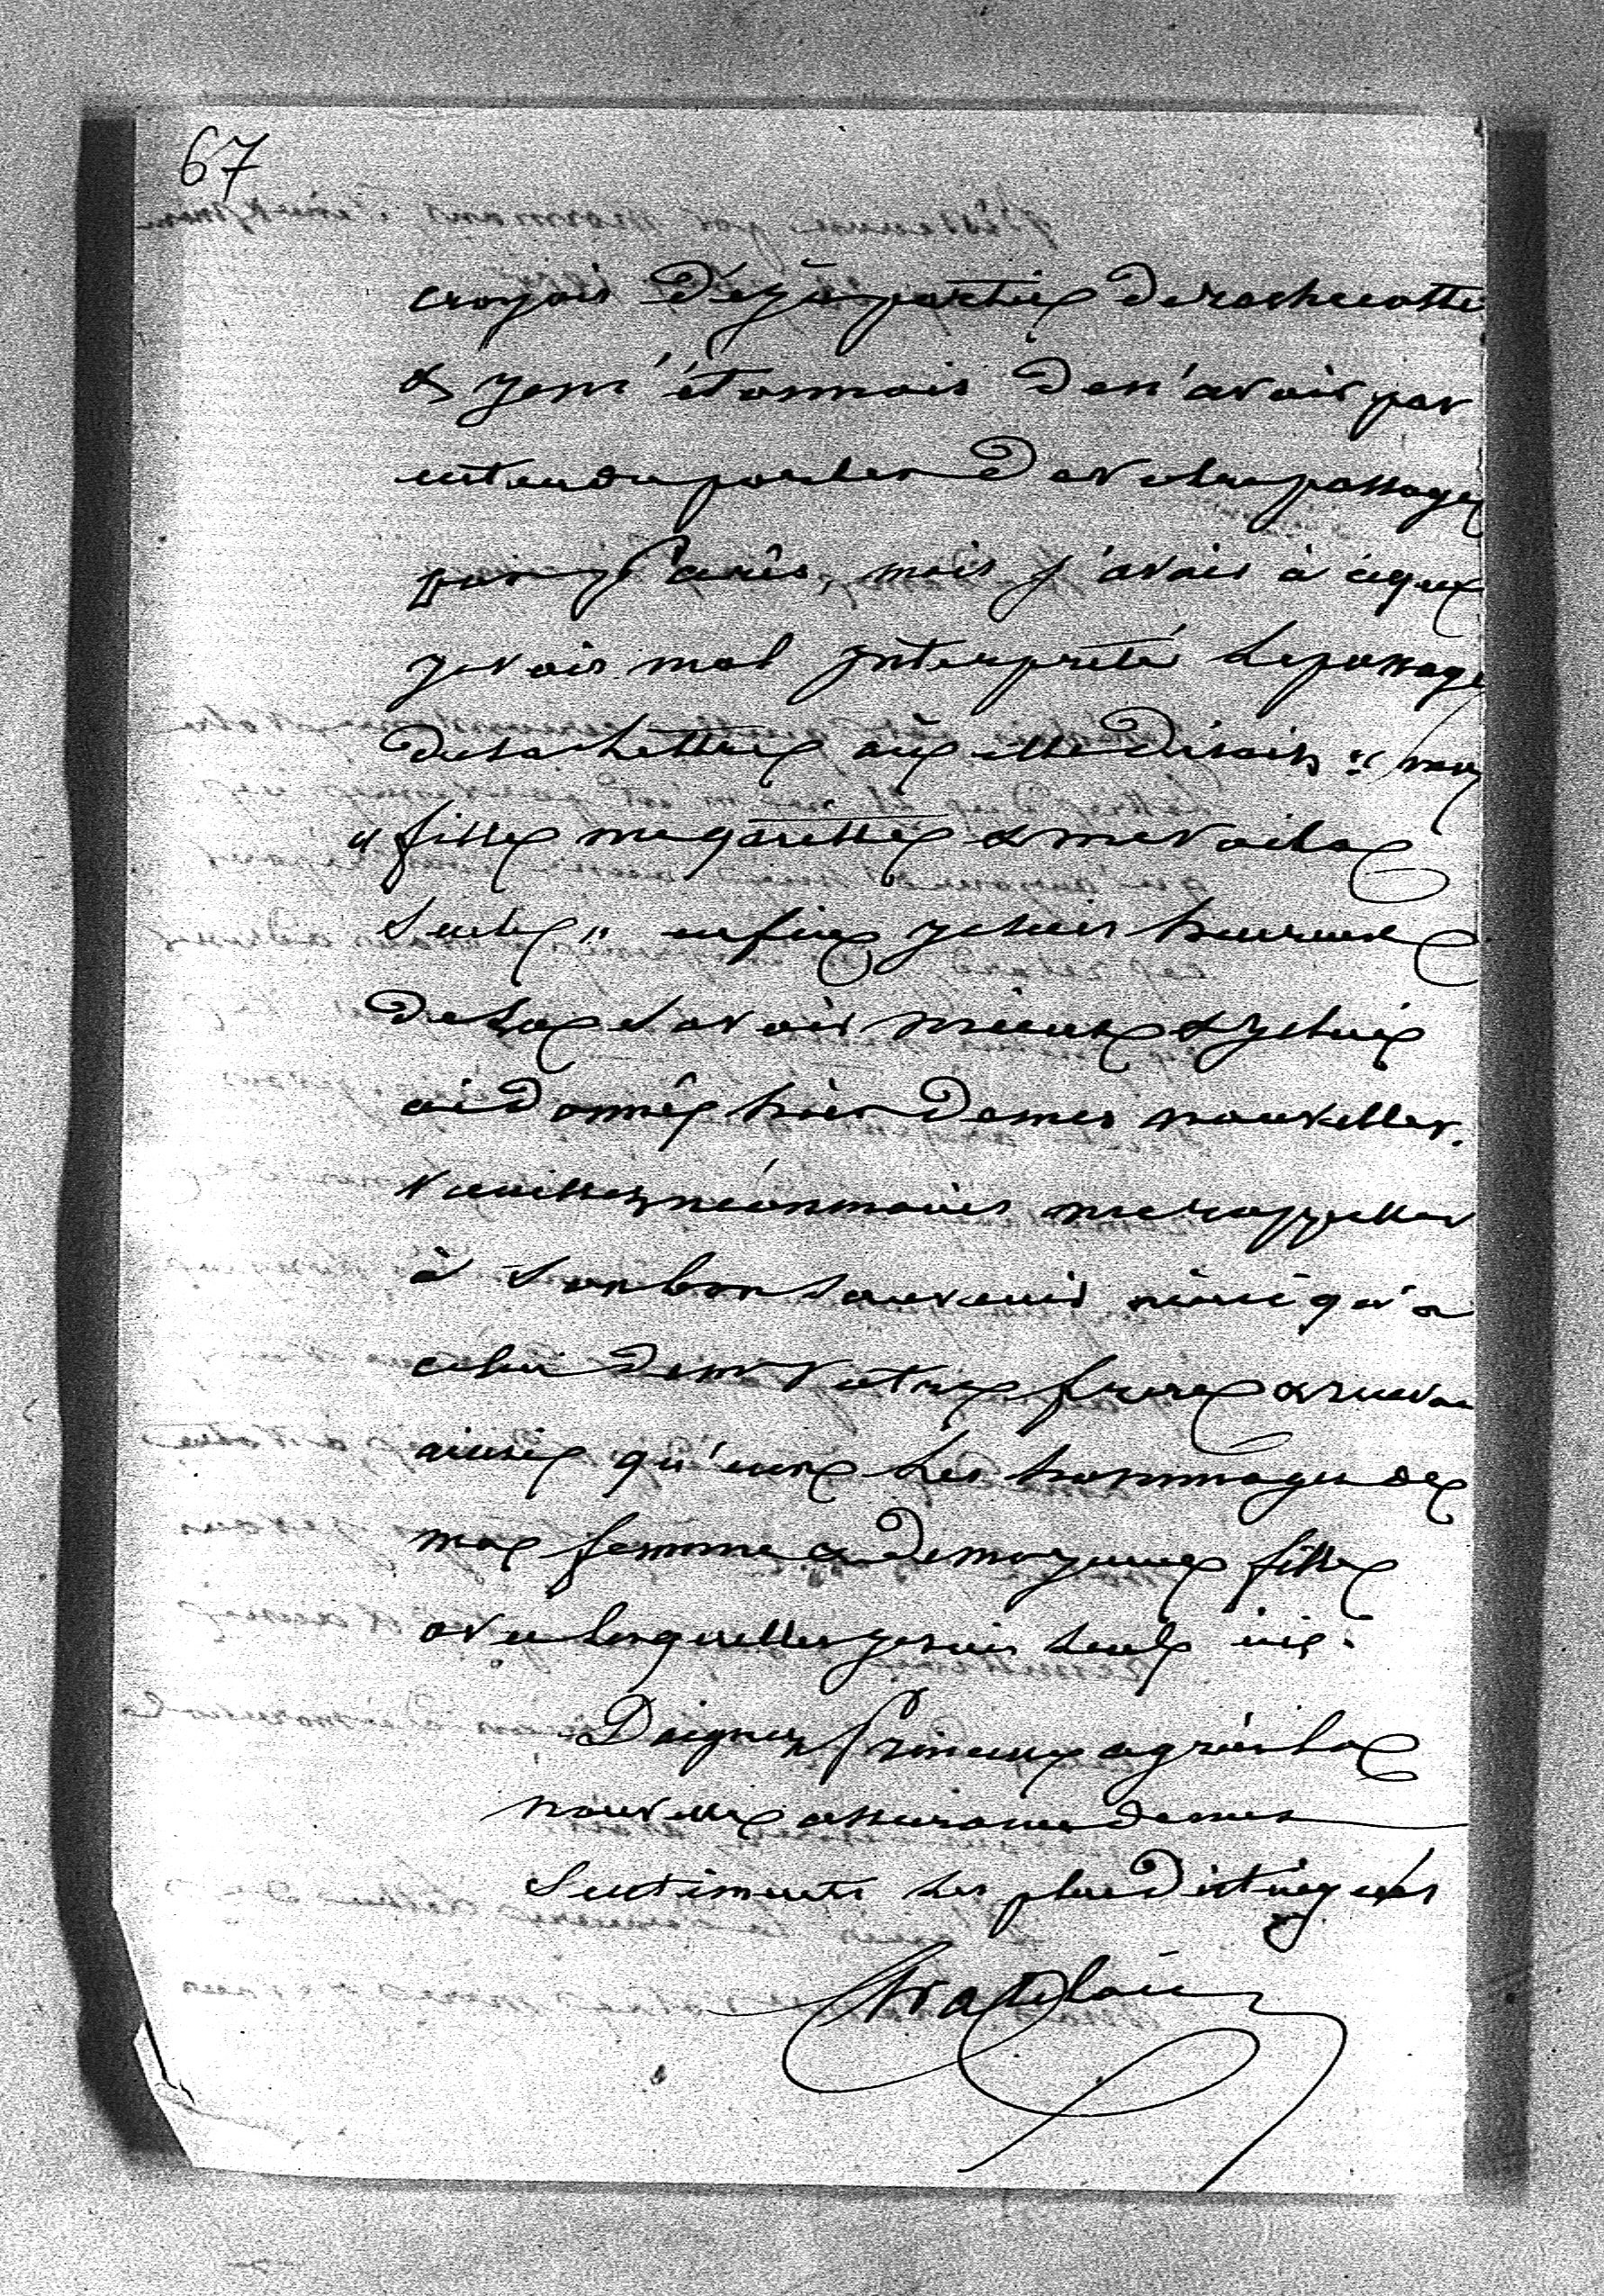 67
croyois déja partie de rochecotte
& je m'étonnois de n'avoir pas
entendu parler de votre passage
par Paris, mais j'avais à ce que je
vois mal interprété le passage
de sa lettre où elle disoit " ma
" fille me gareille & me voila
seule " enfin je suis heureux
de la savoir mieux & je lui
ai donné hier de mes nouvelles.
veuillez néanmoins me rappeller
à son bon souvenir ainsi qu'a
celui de mr votre frere &
ainsi qu'eux les hommages de
ma femme & de ma jeune fille
avec lesquelles je suis seul ici.
Daignez Princesse agréer la
nouvelle assurance de mes
sentiments les plus distingués